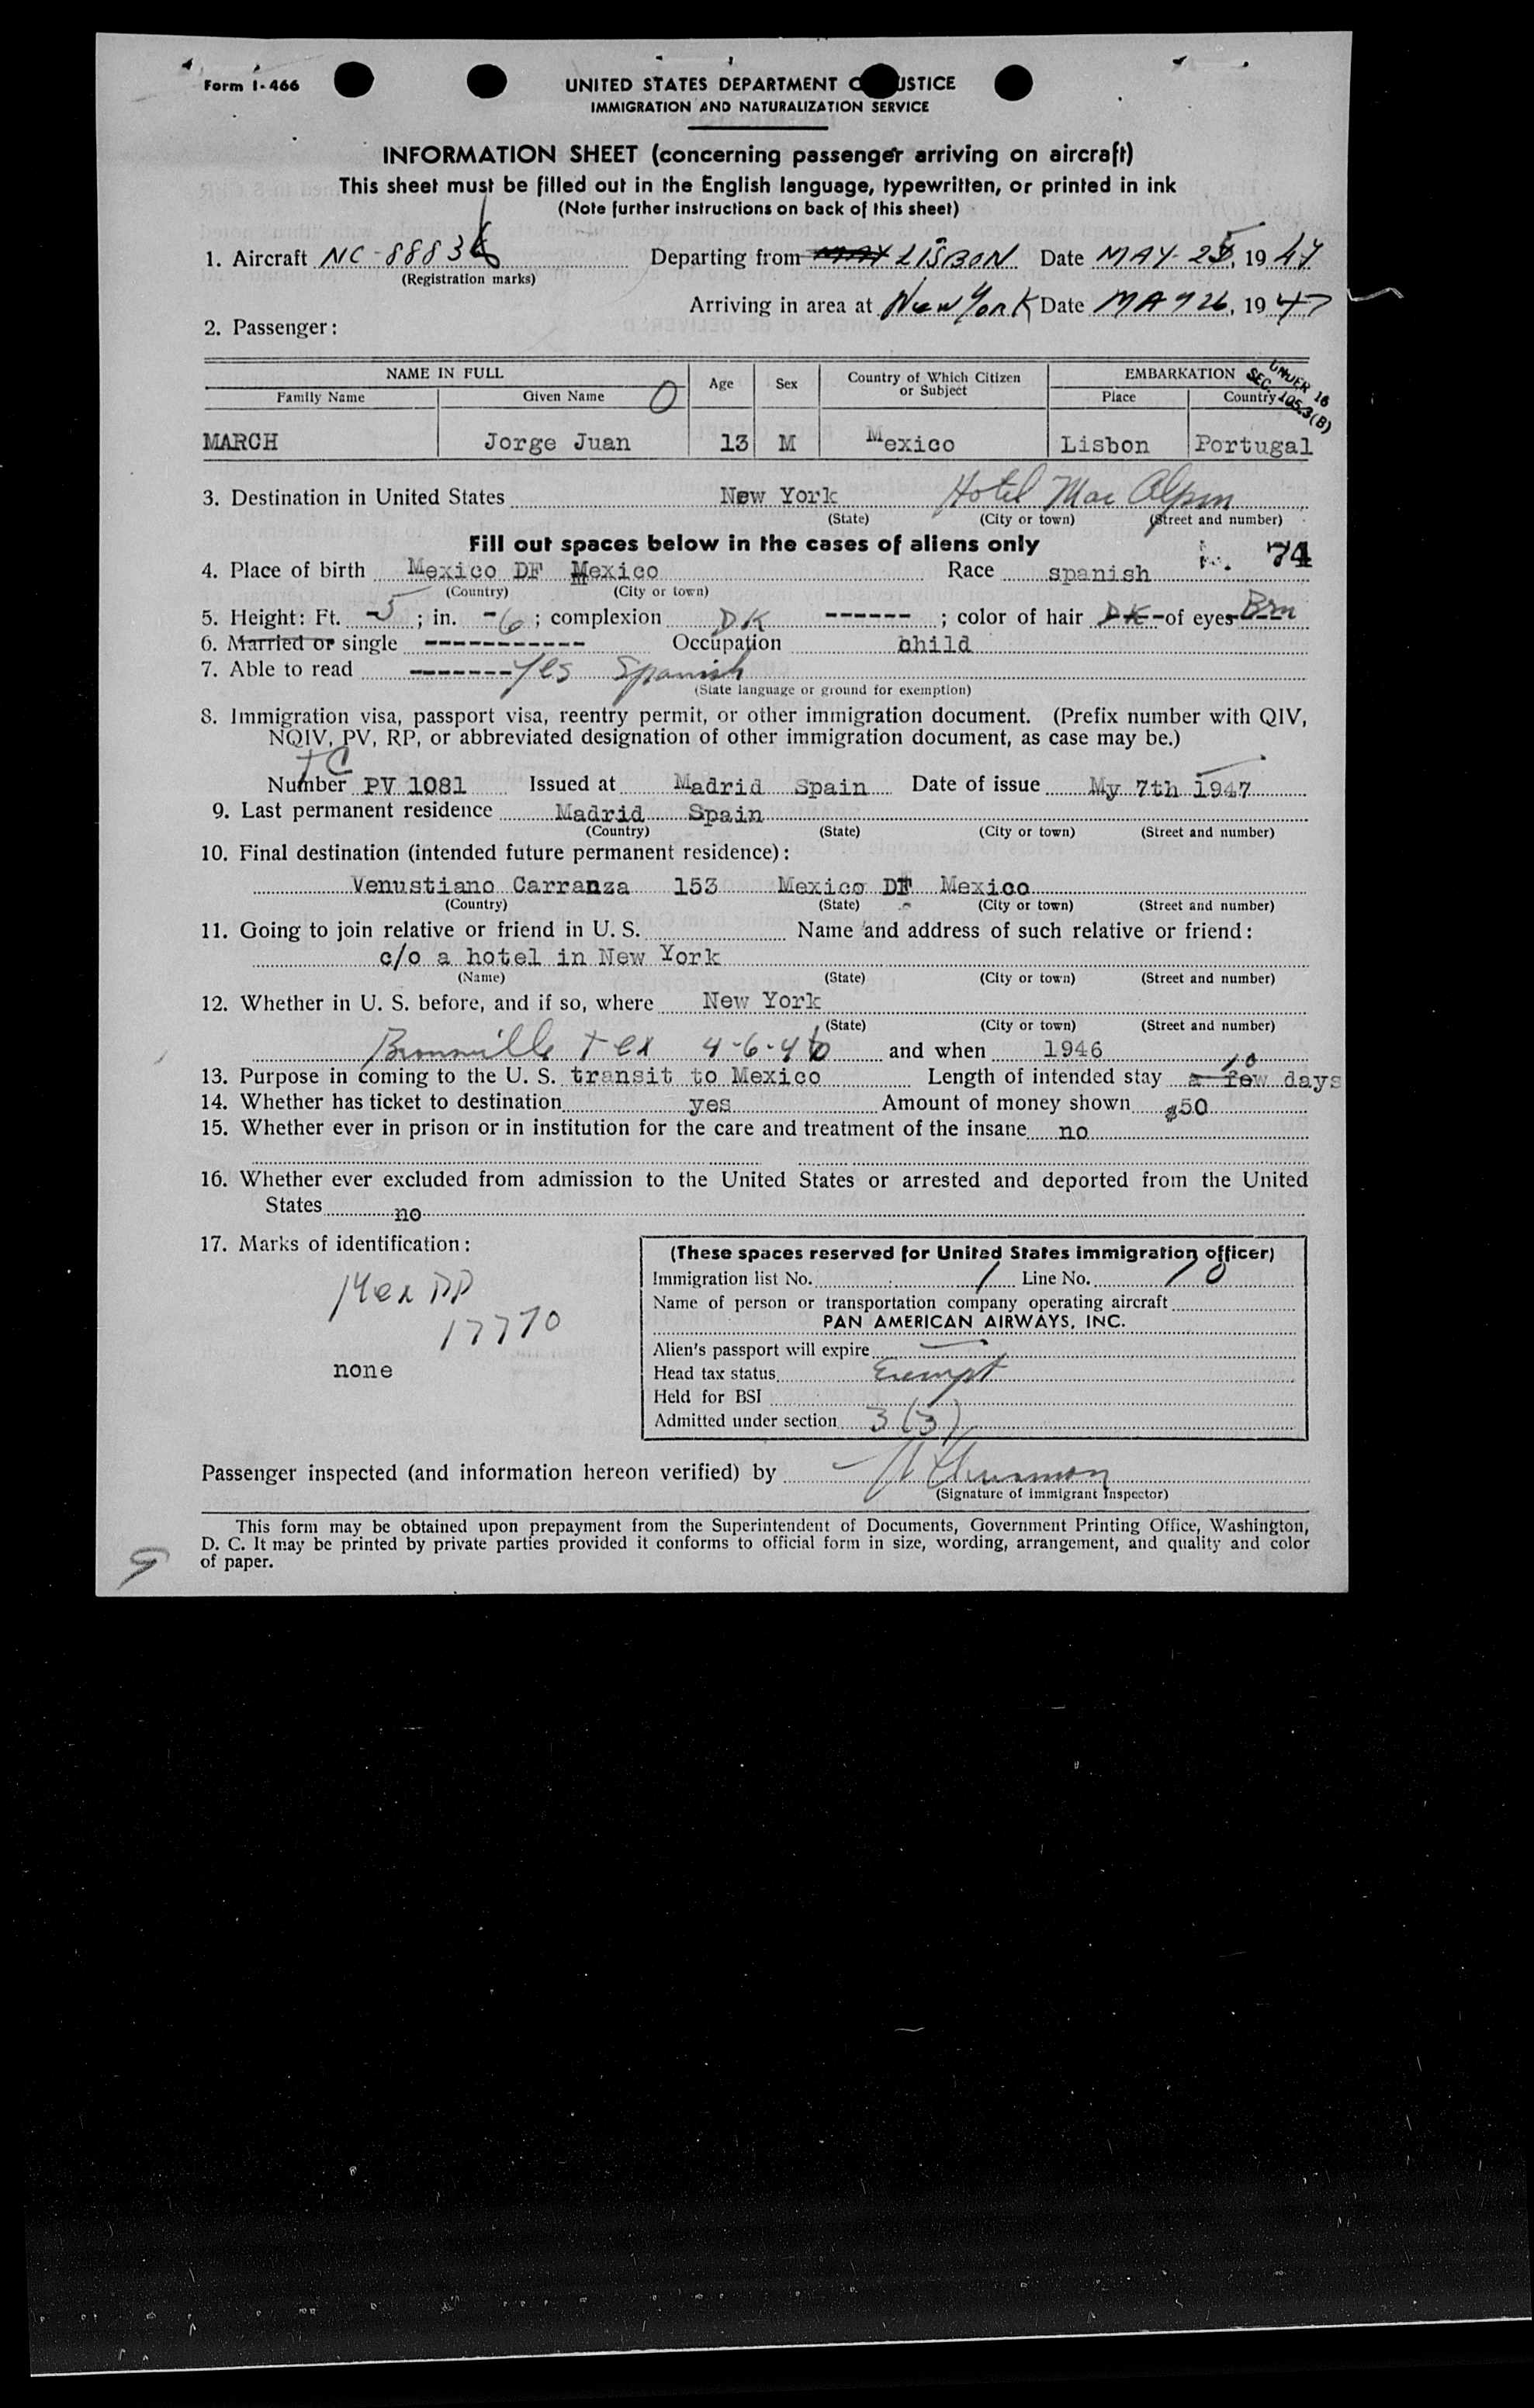 Form I-466
UNITED STATES DEPARTMENT O JUSTICE
IMMIGRATION AND NATURALIZATION SERVICE
INFORMATION SHEET (concerning passenger arriving on aircraft)
This sheet must be filled out in the English language, typewritten, or printed in ink
(Note further instructions on back of this sheet)
1. Aircraft NC-88836 Departing from LISBON Date MAY 25, 1947
(Registration marks)
Arriving in area at New York Date MAY 26, 1947
2. Passenger:
NAME IN FULL Age Sex Country of Which Citizen or Subject EMBARKATION
Family Name Given Name Place Country
UNDER 16
SEC. 105.3(B)
MARCH Jorge Juan 13 M Mexico Lisbon Portugal
3. Destination in United States New York Hotel Mac Alpin
(State) (City or town) (Street and number)
Fill out spaces below in the cases of aliens only
74
4. Place of birth Mexico DF Mexico Race spanish
(Country) (City or town)
5. Height: Ft. -5; in. -6; complexion DK ------; color of hair DK-of eyes Brn
6. Married or single ----------- Occupation child
7. Able to read -------Yes Spanish
(State language or ground for exemption)
8. Immigration visa, passport visa, reentry permit, or other immigration document. (Prefix number with QIV,
NQIV, PV, RP, or abbreviated designation of other immigration document, as case may be.)
TC
Number PV 1081 Issued at Madrid Spain Date of issue My 7th 1947
9. Last permanent residence Madrid Spain
(Country) (State) (City or town) (Street and number)
10. Final destination (intended future permanent residence):
Venustiano Carranza 153 Mexico DF Mexico
(Country) (State) (City or town) (Street and number)
11. Going to join relative or friend in U. S. Name and address of such relative or friend:
c/o a hotel in New York
(Name) (State) (City or town) (Street and number)
12. Whether in U. S. before, and if so, where New York
(State) (City or town) (Street and number)
Brownville Tex 4-6-46 and when 1946
10
13. Purpose in coming to the U. S. transit to Mexico Length of intended stay a few days
14. Whether has ticket to destination yes Amount of money shown $50
15. Whether ever in prison or in institution for the care and treatment of the insane no
16. Whether ever excluded from admission to the United States or arrested and deported from the United
States no
17. Marks of identification:
Mex PP
17770
none
(These spaces reserved for United States immigration officer)
Immigration list No. 1 Line No. 10
Name of person or transportation company operating aircraft
PAN AMERICAN AIRWAYS, INC.
Alien's passport will expire
Head tax status Exempt
Held for BSI
Admitted under section 3 (3)
Passenger inspected (and information hereon verified) by
(Signature of Immigrant Inspector)
This form may be obtained upon prepayment from the Superintendent of Documents, Government Printing Office, Washington,
D. C. It may be printed by private parties provided it conforms to official form in size, wording, arrangement, and quality and color
of paper.